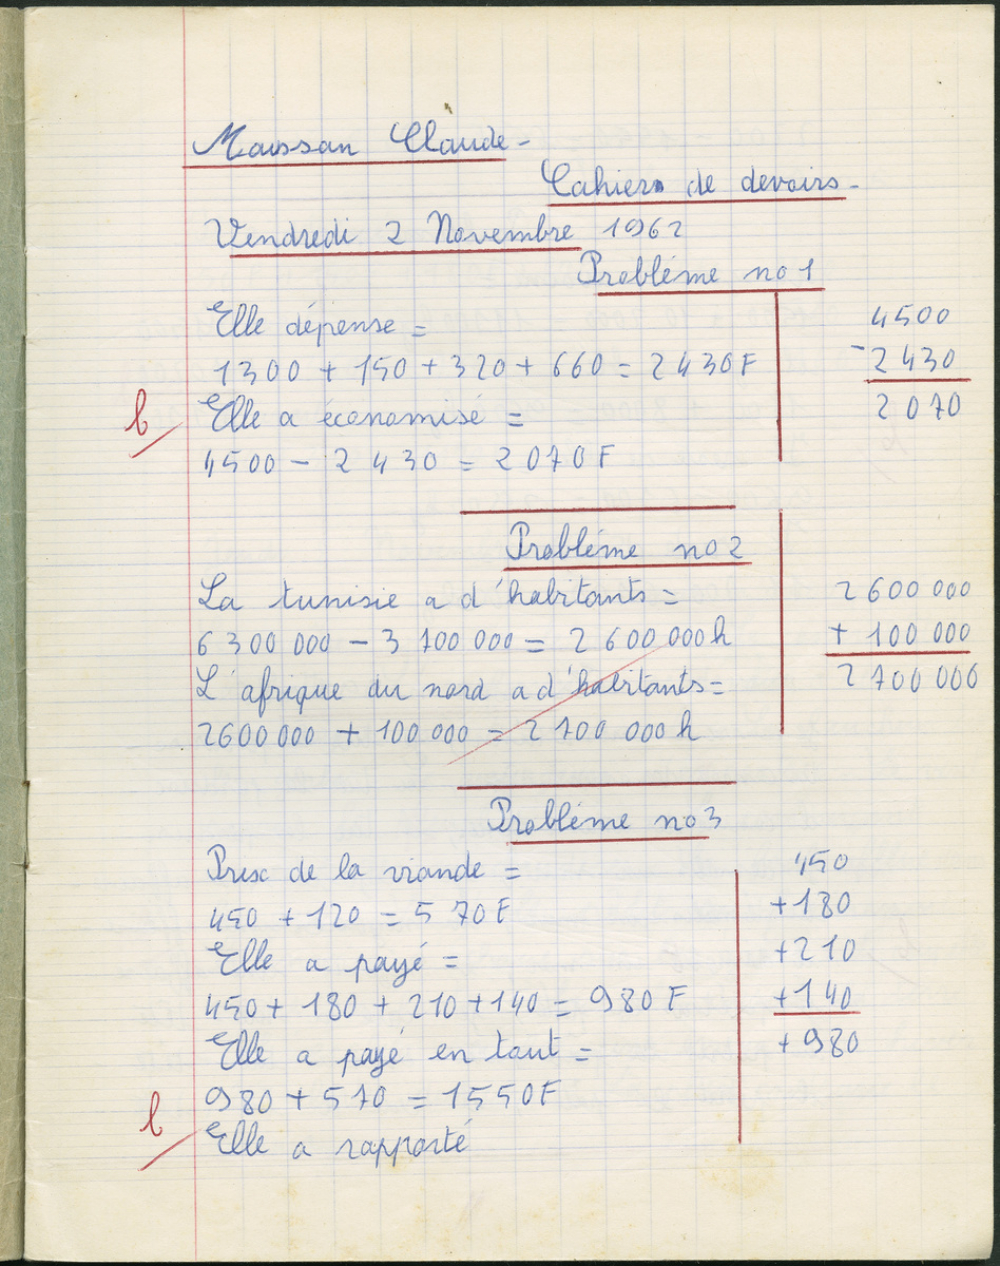 Maussan Claude -
Cahiers de devoirs -
Vendredi 2 Novembre 1962
Problème no 1
Elle dépense =
1300 + 150 + 320 + 660 = 2430F
b
Elle a économisé =
4500 - 2430 = 2070F
4500
- 2430
2070
Problème no 2
La tunisie a d'habitants =
6 300 000 - 3 700 000 = 2 600 000h
L'afrique du nord a d'habitants =
2600 000 + 100 000 = 2 700 000h
2600 000
+ 100 000
2 700 000
Problème no 3
Prix de la viande =
450 + 120 = 570F
Elle a payé =
450 + 180 + 210 + 140 = 980 F
Elle a payé en tout =
980 + 570 = 1550F
b
Elle a rapporté
450
+180
+210
+140
+980